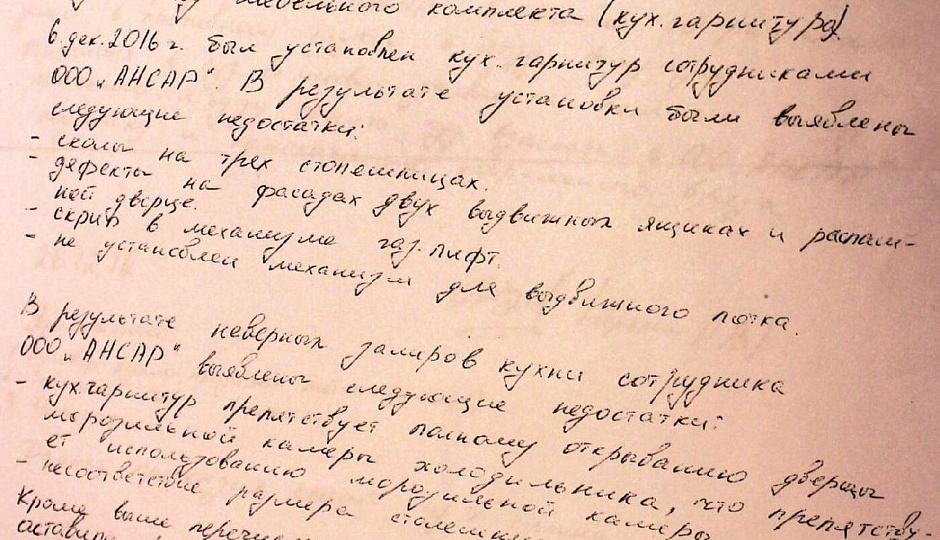 мебельного комплекта (кух. гарнитура).
6 дек. 2016 г. был установлен кух. гарнитур сотрудниками
ООО „АНСАР". В результате установки были выявлены
следующие недостатки:
- сколы на трех столешницах.
- дефекты на фасадах двух выдвижных ящиках и распаш-
ной дверце.
- скрип в механизме газ-лифт.
- не установлен механизм для выдвижного лотка.
В результате неверных замеров кухни сотрудника
ООО „АНСАР" выявлены следующие недостатки:
- кух. гарнитур препятствует полному открыванию дверцы
морозильной камеры холодильника, что препятству-
ет использованию морозильной камеры
- несоответствие размера
Кроме выше